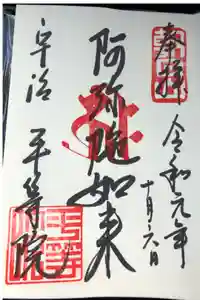 奉拝
令和元年
十月六日
阿弥陀如来
宇治
平等院